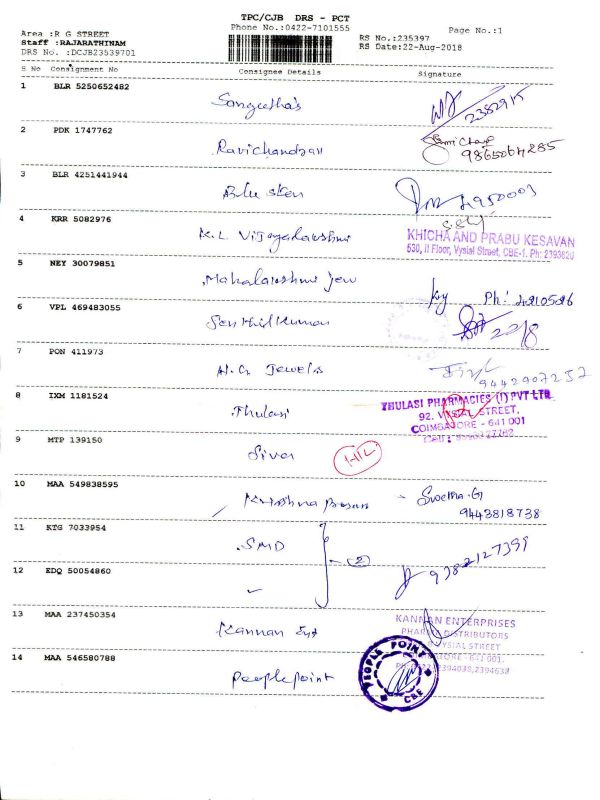 TPC/CJB DRS - PCT
Phone No.:0422-7101555
Page No.:1
Area :R G STREET
Staff :RAJARATHINAM
DRS No. :DCJB23539701
RS No.:235397
RS Date:22-Aug-2018
S No Consignment No Consignee Details Signature
1 BLR 5250652482 Sangeetha's 2382915
2 PDK 1747762 Ravichandran
9865064285
3 BLR 4251441944 Blue Star
4 KRR 5082976 K.L Vijayalakshmi
KHICHA AND PRABU KESAVAN
530, II Floor, Vysial Street, CBE-1. Ph: 2393620
5 NEY 30079851 Mahalakshmi Jew Ph:
6 VPL 469483055 Senthil Kumar 22/8
7 PON 411973 Jewels
9442907257
8 IXM 1181524 Thulasi
THULASI PHARMACIES (I) PVT LTD
92, STREET,
COIMBATORE - 641 001
9 MTP 139150 Siva H/L
10 MAA 549838595 Krishna - Swetha.G
9443818738
11 KTG 7033954 SMD
(2) 9382127399
12 EDQ 50054860
13 MAA 237450354 Kannan Ent
KANNAN ENTERPRISES
PHARMA DISTRIBUTORS
VYSIAL STREET
641 001.
2394038,2394638
14 MAA 546580788 Peoplepoint
PEOPLE POINT
CBE